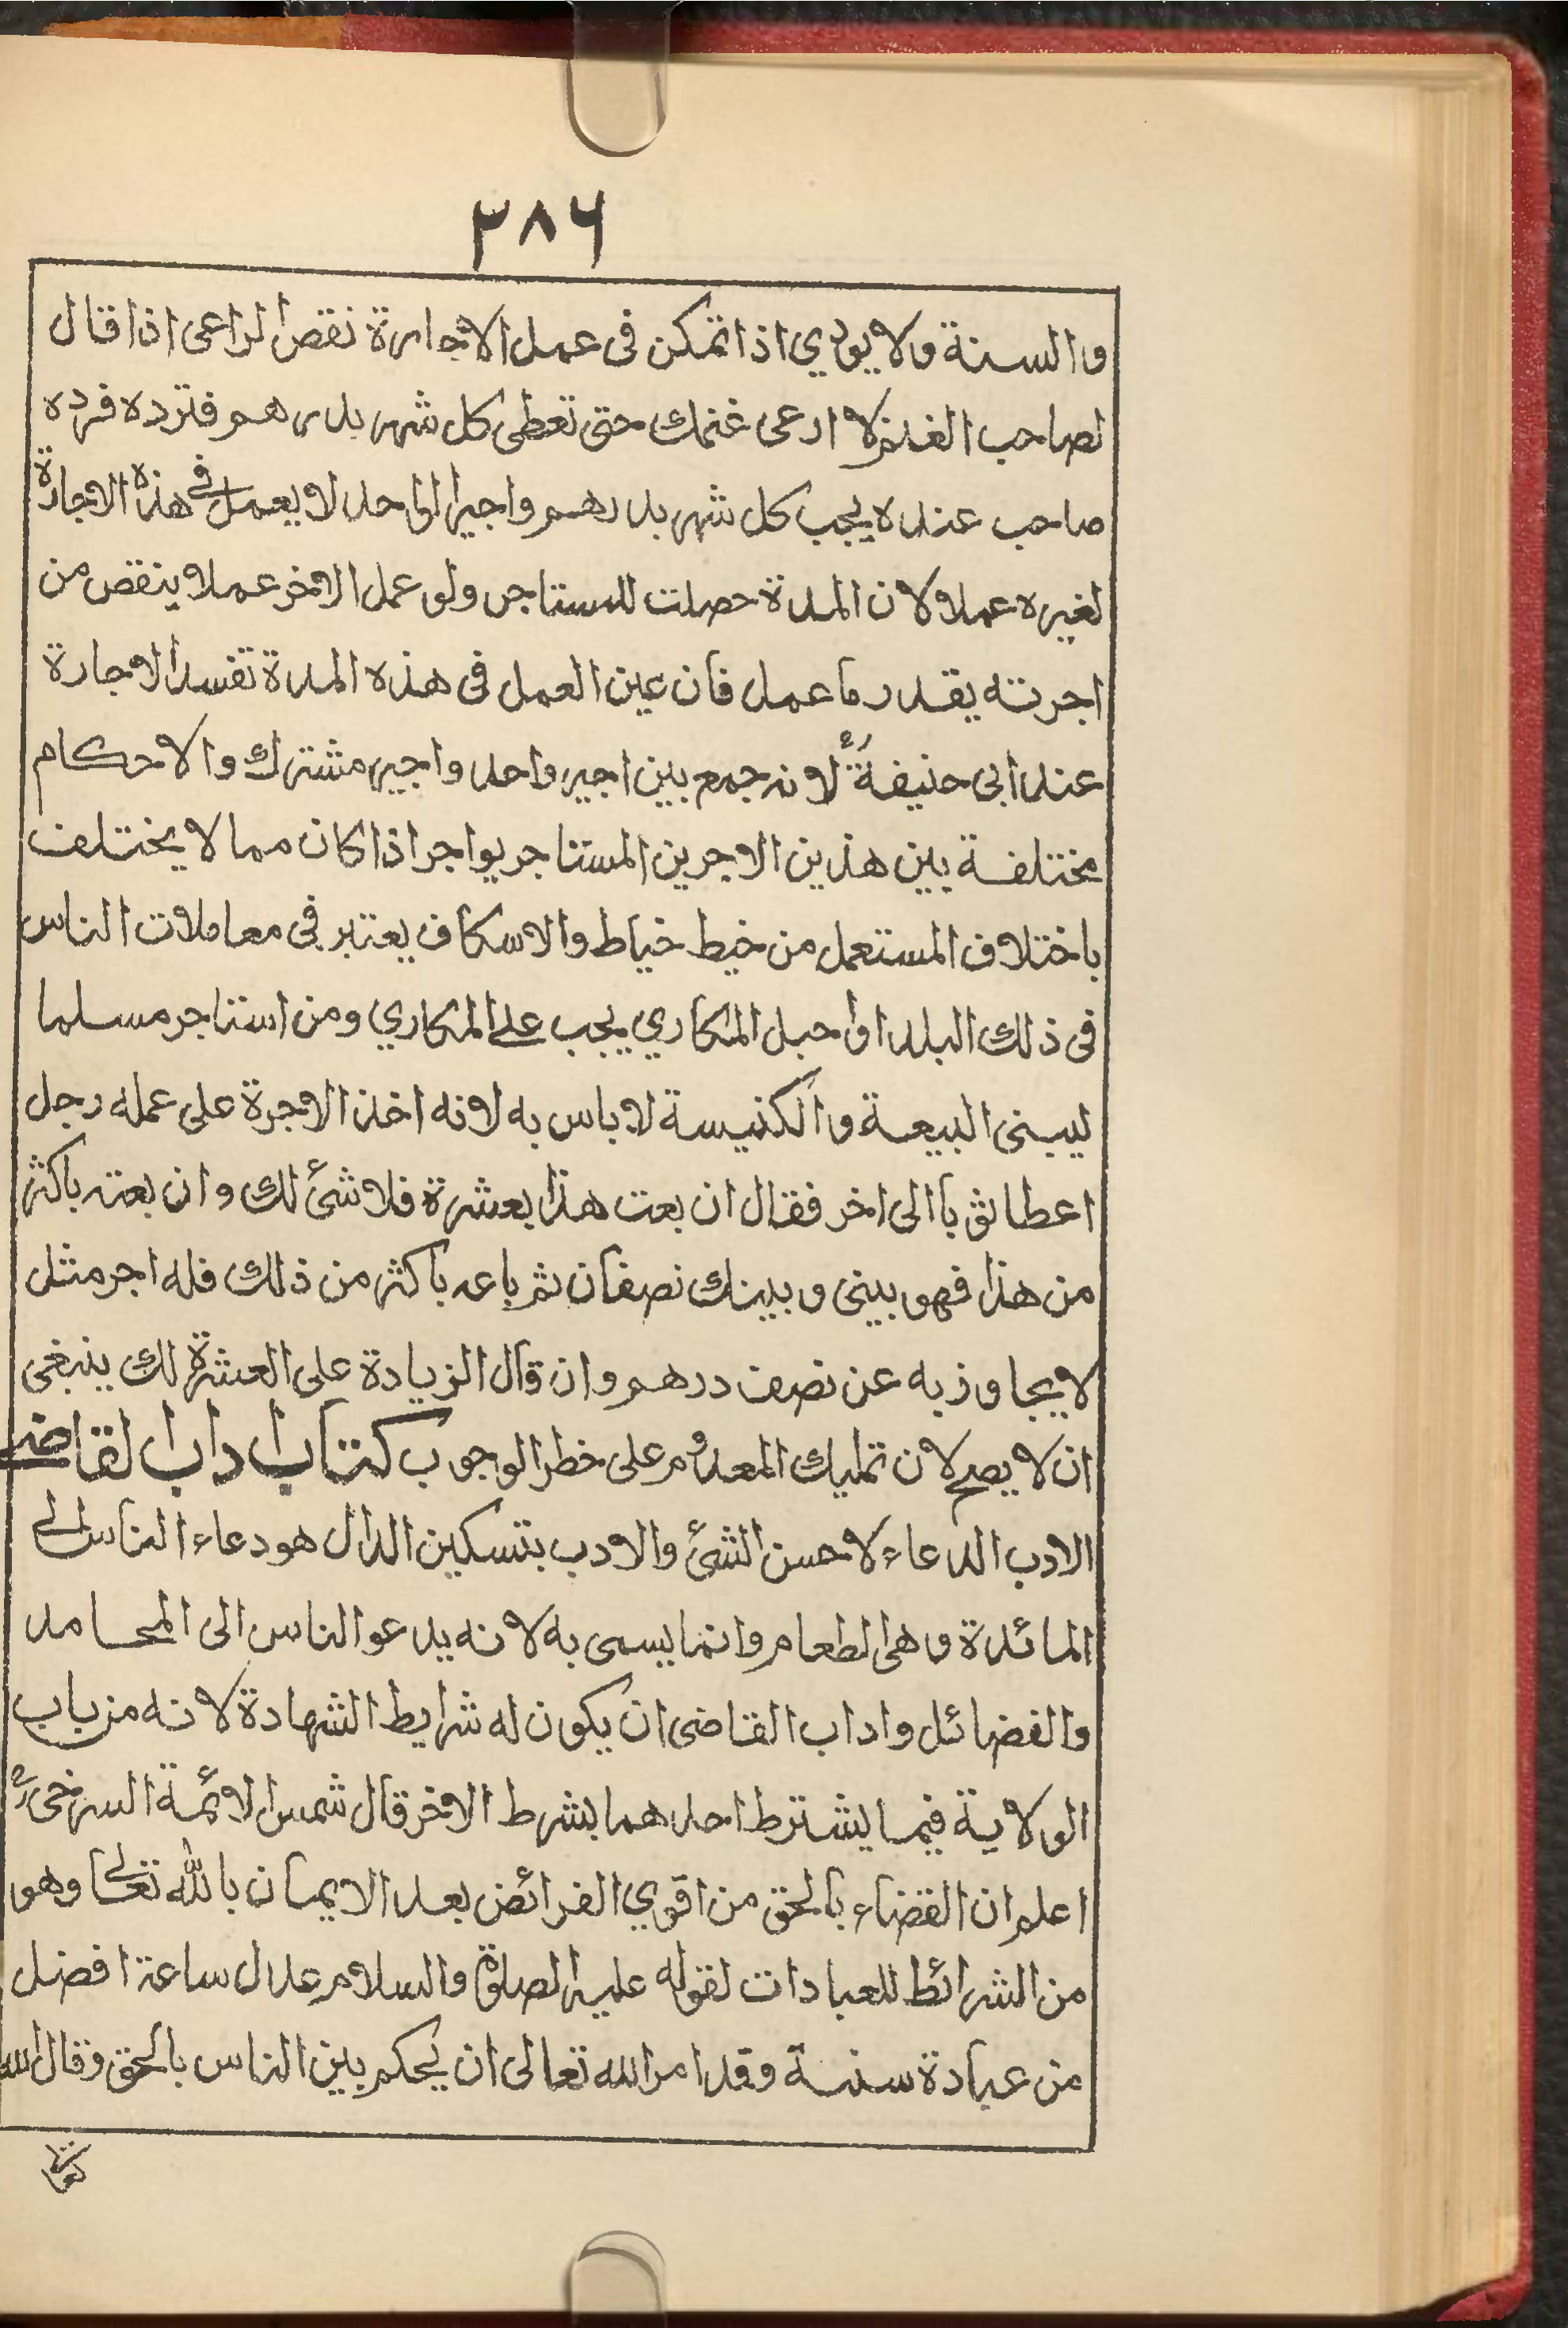 ٣٨٦
والسنة ولا يودي اذا تمكن فى عمل الاجارة نقص الراعى اذا قال
لصاحب الغنم لا ارعى غنمك حتى تعطى كل شهر بدرهم فترده فرده
صاحب عنده يجب كل شهر بدرهم واجير الواحد لا يعمل في هذه الاجارة
لغيره عملا لان المدة حصلت للمستاجر ولو عمل الاخر عملا ينقص من
اجرته يقدر ما عمل فان عين العمل فى هذه المدة تفسد الاجارة
عند ابى حنيفة رح لانه جمع بين اجير واحد واجير مشترك والاحكام
مختلفة بين هذين الاجرين المستاجر يواجر اذا كان مما لا يختلف
باختلاف المستعمل من خيط خياط والاسكاف يعتبر فى معاملات الناس
فى ذلك البلد او حبل المكاري يجب على المكاري ومن استاجر مسلما
ليبنى البيعة والكنيسة لا باس به لانه اخذ الاجرة على عمله رجل
اعطا ثوبا الى اخر فقال ان بعت هذا بعشرة فلا شئ لك وان بعته باكثر
من هذا فهو بينى وبينك نصفان ثم باعه باكثر من ذلك فله اجر مثل
لا يجاوز به عن نصف درهم وان قال الزيادة على العشرة لك ينبغى
ان لا يصح لان تمليك المعدوم على خطر الوجوب كتاب اداب القاضي
الادب الدعاء لاحسن الشئ والادب بتسكين الدال هو دعاء الناس الى
المائدة وهى الطعام وانما يسمى به لانه يدعو الناس الى المحامد
والفضائل واداب القاضى ان يكون له شرايط الشهادة لانه من باب
الولاية فيما يشترط احدهما بشرط الاخر قال شمس الائمة السرخسى رح
اعلم ان القضاء بالحق من اقوي الفرائض بعد الايمان بالله تعالى وهو
من الشرائط للعبادات لقوله عليه الصلوة والسلام عدل ساعة افضل
من عبادة سنة وقد امر الله تعالى ان يحكم بين الناس بالحق وقال الله
تعالى